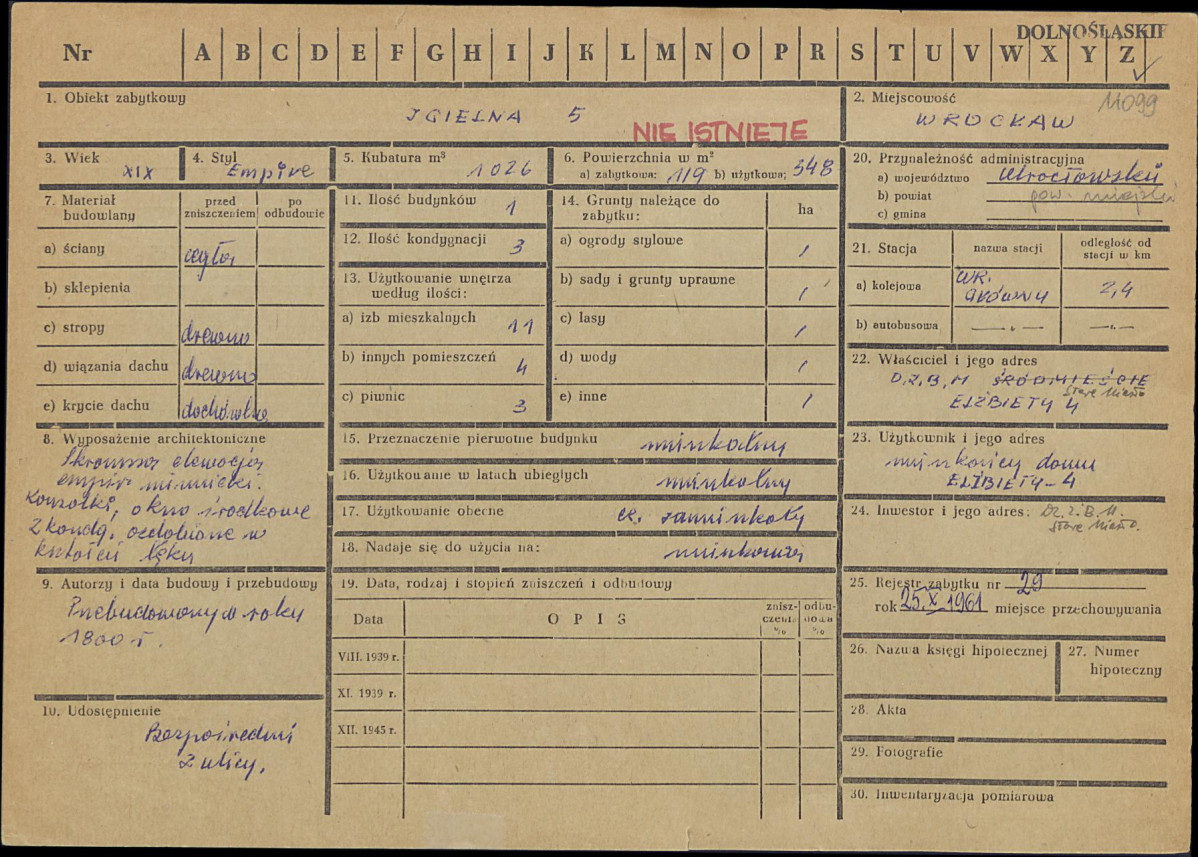 DOLNOŚLĄSKIE
Nr A B C D E F G H I J K L M N O P R S T U V W X Y Z
11099
1. Obiekt zabytkowy
IGIELNA 5
NIE ISTNIEJE
2. Miejscowość
WROCŁAW
3. Wiek
XIX
4. Styl
Empire
5. Kubatura m³
1026
6. Powierzchnia w m²
a) zabytkowa: 119 b) użytkowa: 348
7. Materiał budowlany
przed zniszczeniem
po odbudowie
a) ściany cegła
b) sklepienia
c) stropy drewno
d) wiązania dachu drewno
e) krycie dachu dachówka
8. Wyposażenie architektoniczne
Skromna elewacja
empir
Konsolki, okno środkowe
2 kondg. ozdobione w
kształcie łęku
9. Autorzy i data budowy i przebudowy
Przebudowany w roku
1800 r.
10. Udostępnienie
Bezpośredni
z ulicy.
11. Ilość budynków 1
12. Ilość kondygnacji 3
13. Użytkowanie wnętrza
według ilości:
a) izb mieszkalnych 11
b) innych pomieszczeń 4
c) piwnic 3
14. Grunty należące do
zabytku:
ha
a) ogrody stylowe /
b) sady i grunty uprawne /
c) lasy /
d) wody /
e) inne /
15. Przeznaczenie pierwotne budynku mieszkalny
16. Użytkowanie w latach ubiegłych mieszkalny
17. Użytkowanie obecne cz. zamieszkały
18. Nadaje się do użycia na: mieszkania
19. Data, rodzaj i stopień zniszczeń i odbudowy
Data
OPIS
zniszczenia %
odbudowa %
VIII. 1939 r.
XI. 1939 r.
XII. 1945 r.
20. Przynależność administracyjna
a) województwo Wrocławskie
b) powiat pow. miejski
c) gmina
21. Stacja
nazwa stacji
odległość od
stacji w km
a) kolejowa WR. GŁÓWNY 2,4
b) autobusowa —„— —„—
22. Właściciel i jego adres
D.Z.B.M ŚRÓDMIEŚCIE
Stare Miasto
ELŻBIETY 4
23. Użytkownik i jego adres
mieszkańcy domu
ELŻBIETY-4
24. Inwestor i jego adres: Dz.Z.B.M.
Stare Miasto.
25. Rejestr zabytku nr 29
rok 25.X.1961 miejsce przechowywania
26. Nazwa księgi hipotecznej
27. Numer
hipoteczny
28. Akta
29. Fotografie
30. Inwentaryzacja pomiarowa